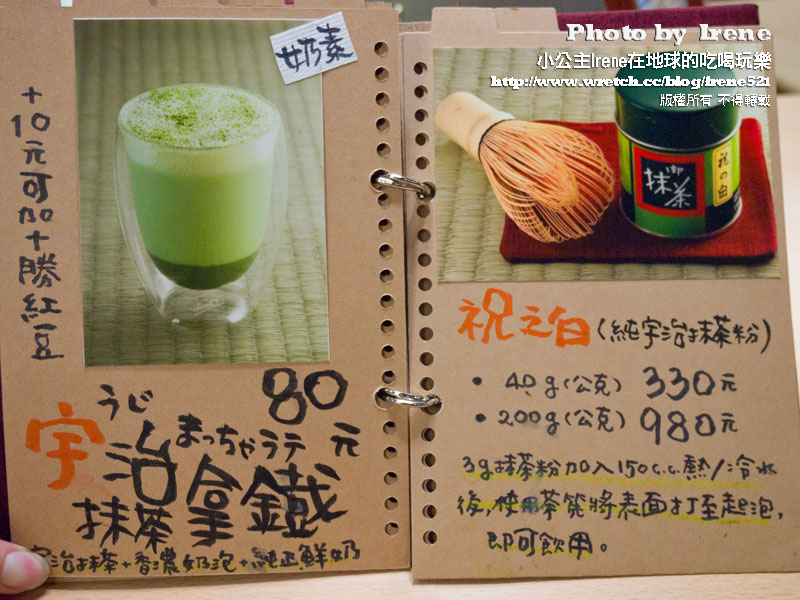 Photo by Irene
小公主Irene在地球的吃喝玩樂
http://www.wretch.cc/blog/irene521
版權所有 不得轉載
奶素
+10元可加十勝紅豆
80元
うじ まっちゃラテ
宇治抹茶拿鐵
宇治抹茶+香濃奶泡+純正鮮奶
御抹茶
祝の白
祝之白(純宇治抹茶粉)
• 40g(公克) 330元
• 200g(公克) 980元
3g抹茶粉加入150c.c.熱/冷水
後,使用茶筅將表面打至起泡,
即可飲用。